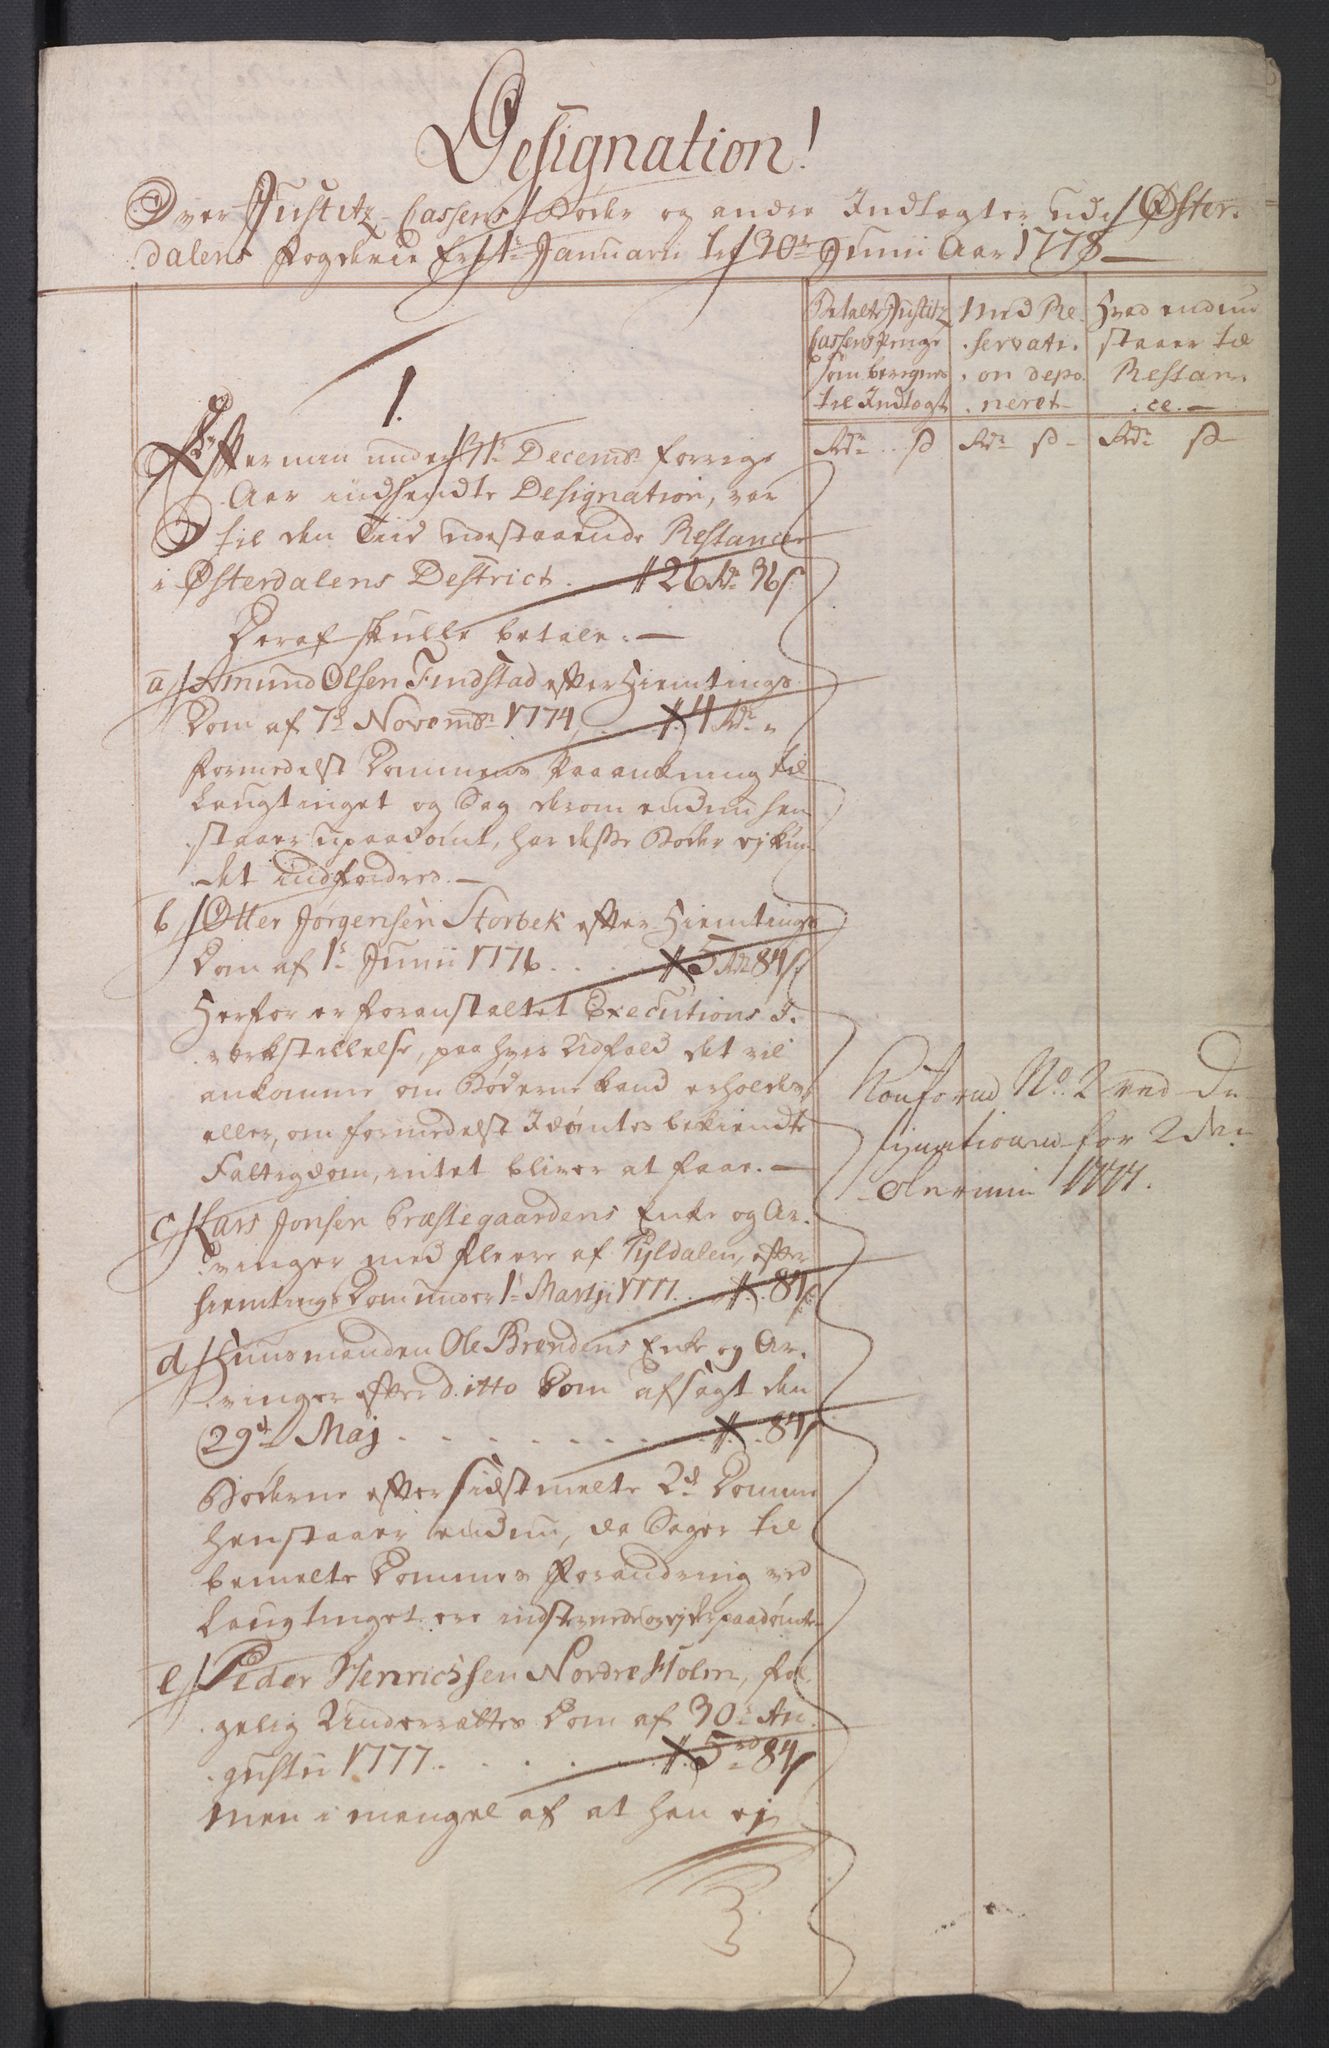 Designation!
Over Justitz-Cassens Bøder og andre Indtægter udi Øster-
dalens Fogderie fra 1te Januarii til 30te Junii Aar 1778
Betalte Justitz
Cassens Penge
som beregnes
til Indtægt
Med Re-
servati-
on depo-
neret
Hvad endnu
staaer til
Restan-
ce.
Rdr ß Rdr ß Rdr ß
1.
Efter min under 31te Decembr forrige
Aar indsendte Designation, var
til den Tiid udestaaende Restancer
i Østerdalens Destrict. 26 Rdr 36 ß
Deraf skulle betale:
a/ Amund Olsen Findstad efter Hiemtings
Dom af 7de Novembr 1774, 4 Rdr "
formedelst Dommens Paaankning til
Laugtinget og Sag derom endnu hen-
staaer upaadømt, har disse Bøder ej kun-
det indfordres.
b/ Otter Jørgensen Storbek efter Hiemtings
Dom af 1te Junii 1776. 5 Rd 84 ß
Herfor er foranstaltet Executions I-
værkstillelse, paa hvis Udfald det vil
ankomme om Bøderne kand erholdes,
eller, om formedelst Idømtes bekiendte
Fattigdom, intet bliver at faae.
Conferend No. 2 ved De-
signationen for 2den
Termin 1777.
c/ Lars Jonsen Præstegaardens Enke og Ar-
vinger med fleere af Tyldalen, efter
Hiemtings Dom under 1te Martji 1777. 84 ß
d/ Huusmanden Ole Brendens Enke og Ar-
vinger efter ditto Dom afsagt den
29de Maj 84 ß
Bøderne efter sidstmelte 2de Domme
henstaaer endnu, da Sager til
bemelte Dommes Forandring ved
Laugtinget ere indstevnede og ej der paadømte
e/ Peder Henrichsen Nordre Holm, føl-
gelig Underrettes Dom af 30te Au-
gustii 1777. 5 rd 84 ß
Men i mangel af at han ej